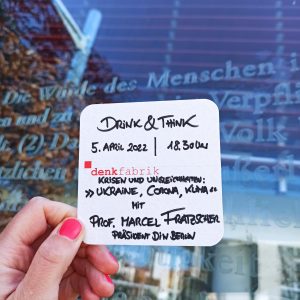 Die Würde des Menschen
Verpfl
und zu
Volk
DRINK & THINK
5. APRIL 2022 | 18.30 Uhr
denkfabrik
KRISEN UND UNGLEICHHEITEN:
»UKRAINE, CORONA, KLIMA«
MIT
PROF. MARCEL FRATZSCHER
PRÄSIDENT DIW BERLIN